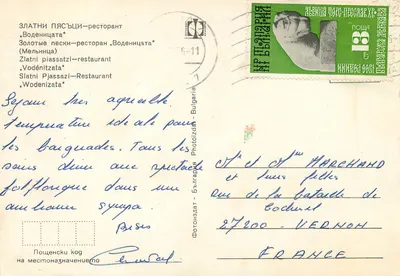 ЗЛАТНИ ПЯСЪЦИ—ресторант
„Воденицата"
Золотые пески—ресторан „Воденицата"
(Мельница)
Zlatni piassatzi—restaurant
„Vodénitzata"
Slatni Pjassazi—Restaurant
„Wodenizata"
Séjour très agréable
température idéale pour
les baignades. Tous les
soirs dîner avec spectacle
folklorique dans une
ambiance sympa.
Bises
Фотоиздат - България Photoizdat - Bulgaria
Пощенски код
на местоназначението
НР БЪЛГАРИЯ
ПОЩИ
13
Mr et Mme MARCHAND
et leurs filles
rue de la bataille de
Cocherel
27200 - VERNON
FRANCE